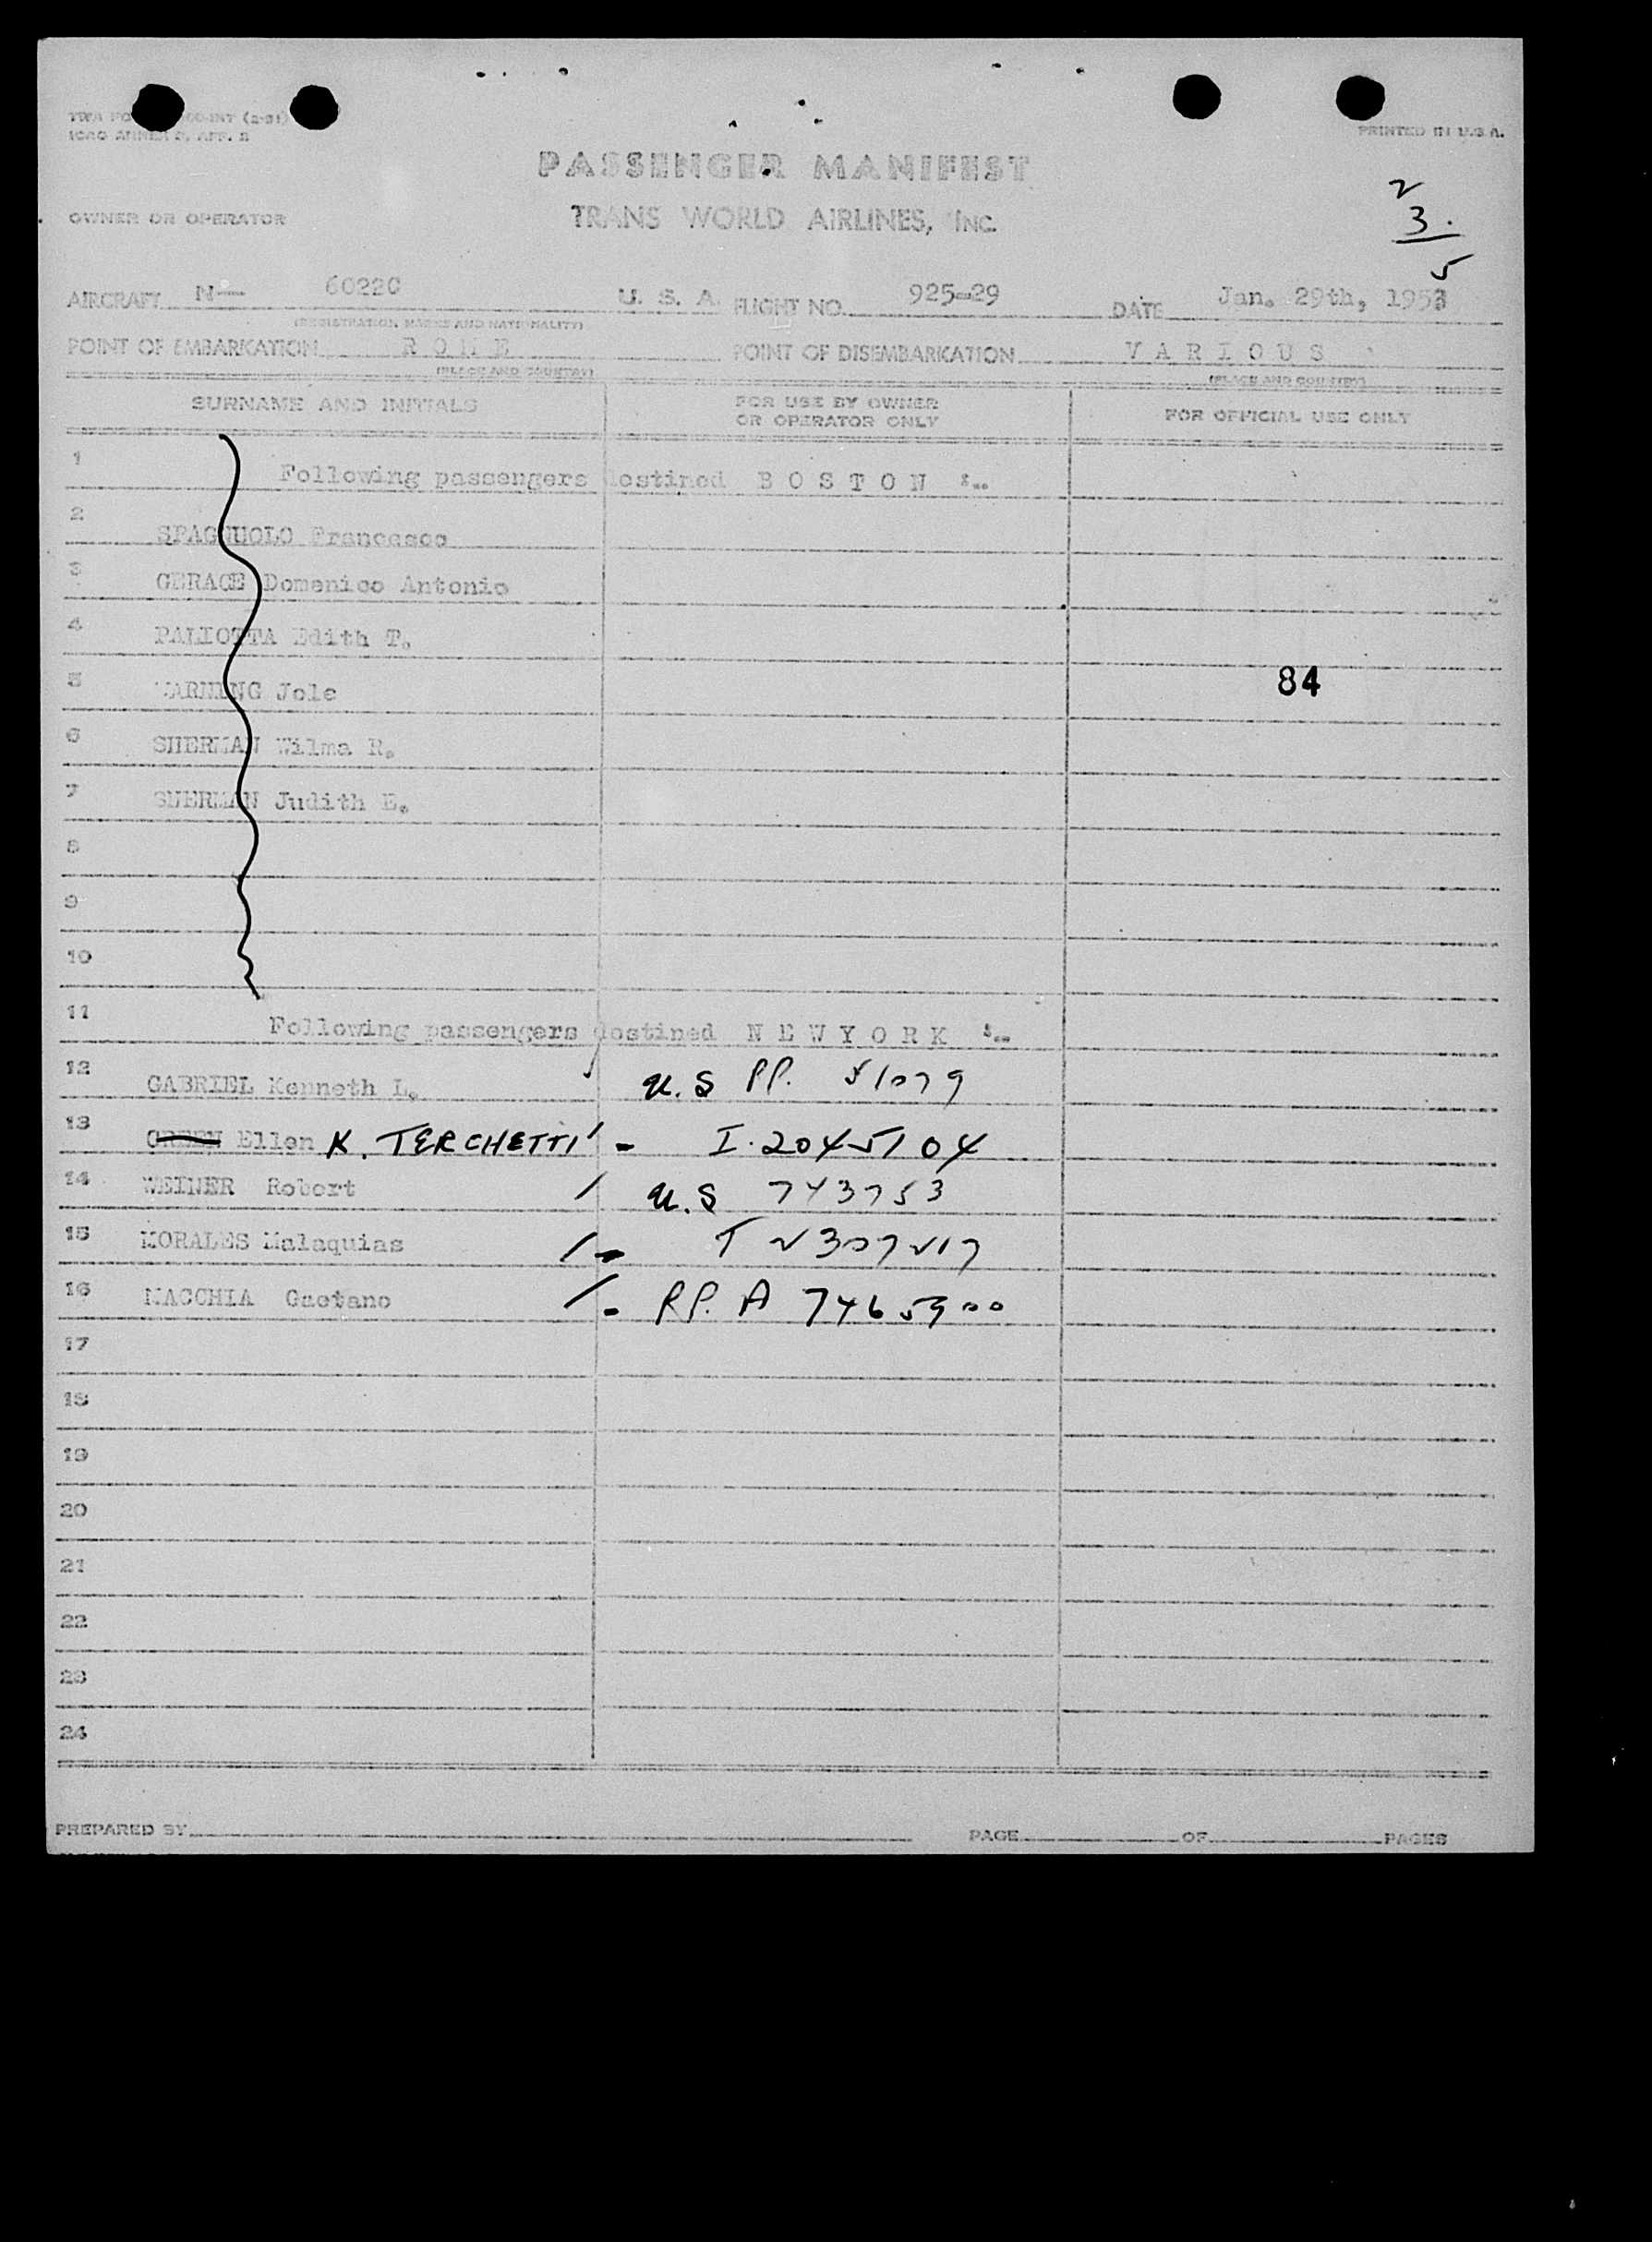 PRINTED IN U.S.A.
PASSENGER MANIFEST
OWNER OR OPERATOR
TRANS WORLD AIRLINES, INC.
2
3.
5
AIRCRAFT N- 6022C U. S. A. FLIGHT NO. 925-29 DATE Jan. 29th, 1953
(REGISTRATION MARKS AND NATIONALITY)
POINT OF EMBARKATION R O M E POINT OF DISEMBARKATION V A R I O U S
(PLACE AND COUNTRY) (PLACE AND COUNTRY)
SURNAME AND INITIALS FOR USE BY OWNER OR OPERATOR ONLY FOR OFFICIAL USE ONLY
1 Following passengers destined B O S T O N :-
2 SPAGNUOLO Francesco
3 GERACE Domenico Antonio
4 PALIOTTA Edith T.
5 Jole
84
6 SHERMAN Wilma R.
7 SHERMAN Judith E.
8
9
10
11 Following passengers destined N E W Y O R K :-
12 GABRIEL Kenneth L. U.S PP. 51079
13 GREEN Ellen K. TERCHETTI - I. 2045104
14 WEINER Robert / U.S 743753
15 MORALES Malaquias / - T 2307217
16 MACCHIA Gaetano / - PP. A 7465900
17
18
19
20
21
22
23
24
PREPARED BY PAGE OF PAGES